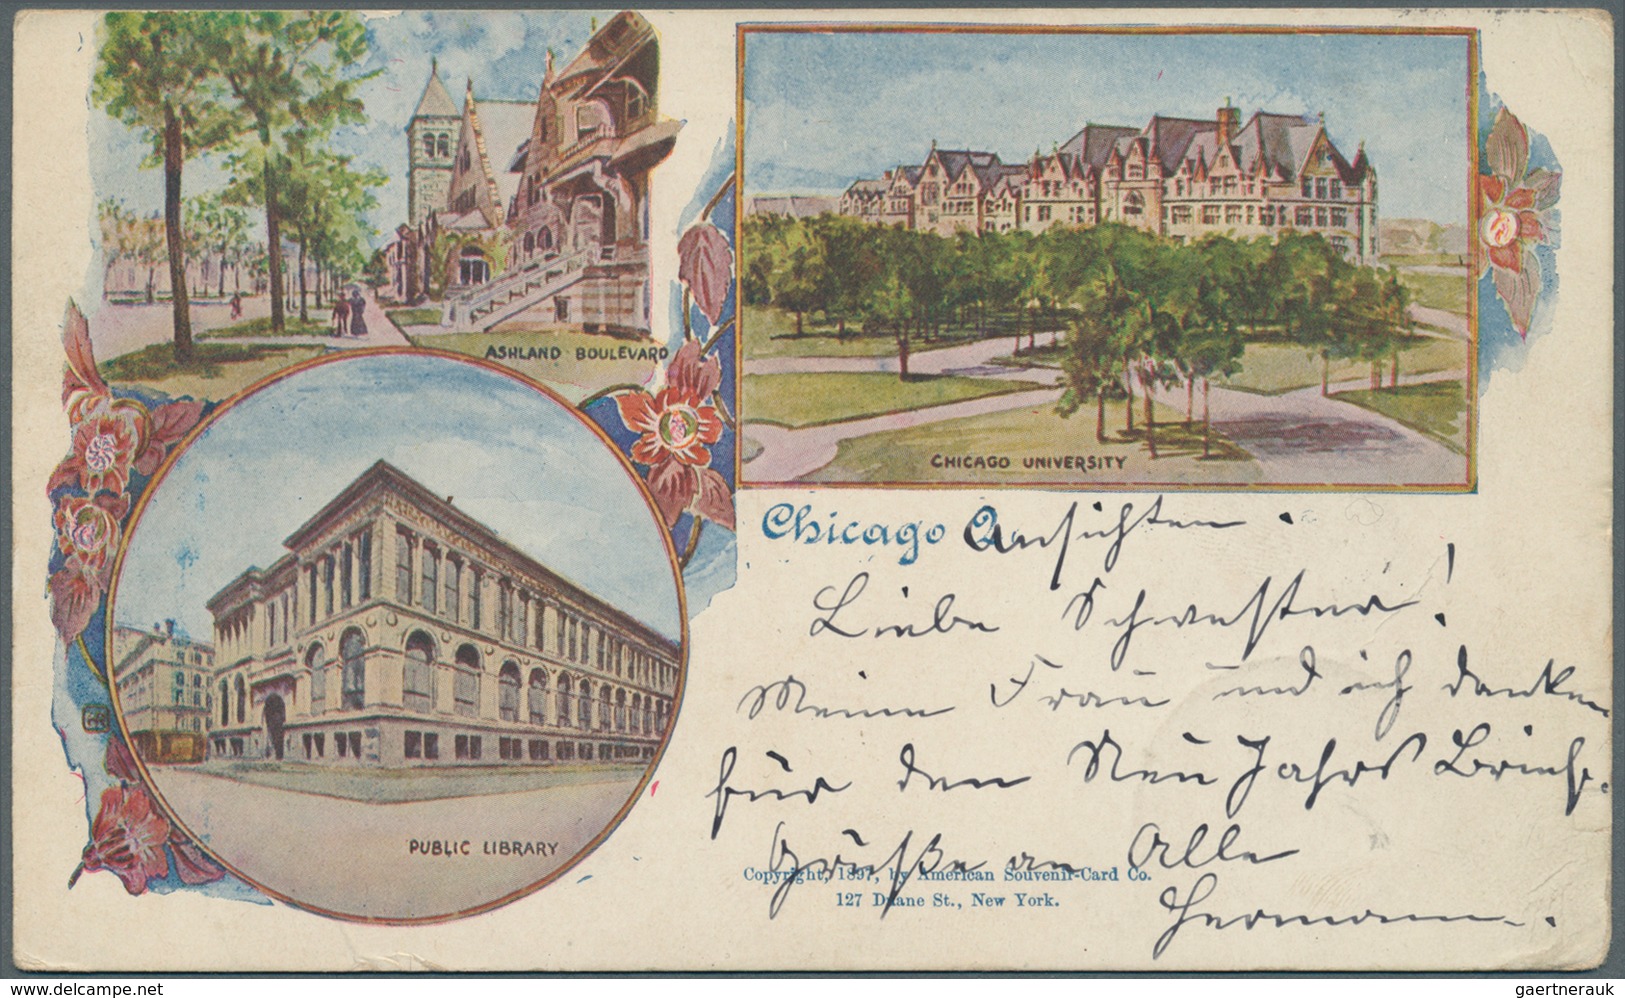 ASHLAND BOULEVARD
CHICAGO UNIVERSITY
PUBLIC LIBRARY
Chicago Ansichten.
Liebe Schwester!
Meine Frau und ich danken
für den Neu Jahrs Brief.
Grüße an Alle
Hermann.
Copyright, 1897, by American Souvenir-Card Co.
127 Duane St., New York.
delcampe.net
gaertnerauk